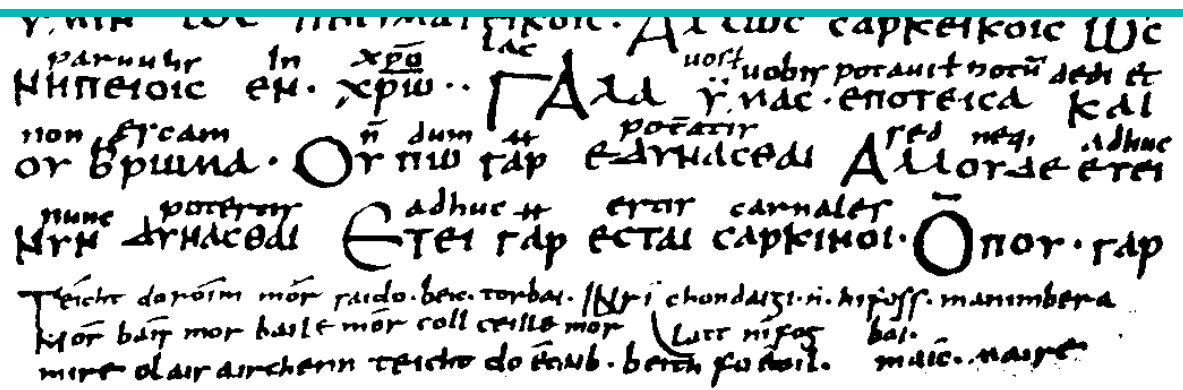 ΥΜΙΝ ΩC ΠΝΕΥΜΑΤΙΚΟΙC· ΑΛΛΩC CΑΡΚΕΙΚΟΙC ΩC
paruulis in xp̄o lac uos ł uobis potaui ł potū dedi et
ΝΗΠΕΙΟΙC ΕΝ· ΧΡ̅Ω·· ΓΑΛΑ ΫΜΑC· ΕΠΟΤΕΙCΑ ΚΑΙ
non escam n̄ dum poterātis sed neq; adhuc
ΟΥ ΒΡΩΜΑ· ΟΥΠΩ ΓΑΡ ΕΔΥΝΑCΘΑΙ ΑΛΛΟΥΔΕ ΕΤΕΙ
nunc potestis adhuc estis carnales
ΝΥΝ ΔΥΝΑCΘΑΙ ΕΤΕΙ ΓΑΡ ΕCΤΑΙ CΑΡΚΙΝΟΙ· ΟΠΟΥ· ΓΑΡ
Téicht doróim mór saido· bec· torbai· INrí chondaigi·n· hifoss· manimbera
Mór báis mór baile mór coll ceille mór latt nífog bai·
mire olais airchenn teicht do écaib· beith fo étoil· maíc· maire